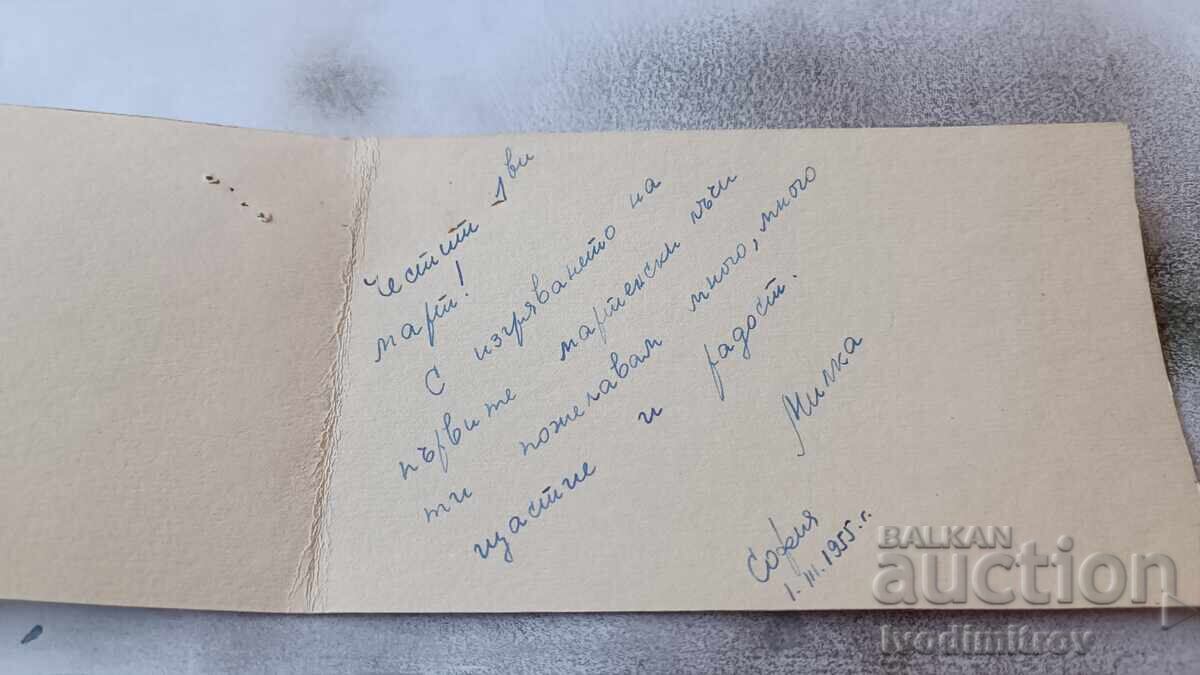 Честит 1ви
март!
С изгряването на
първите мартенски лъчи
ти пожелавам много, много
щастие и радост.
Милка
София
1. III. 1955 г.
BALKAN
auction
ivodimitrov